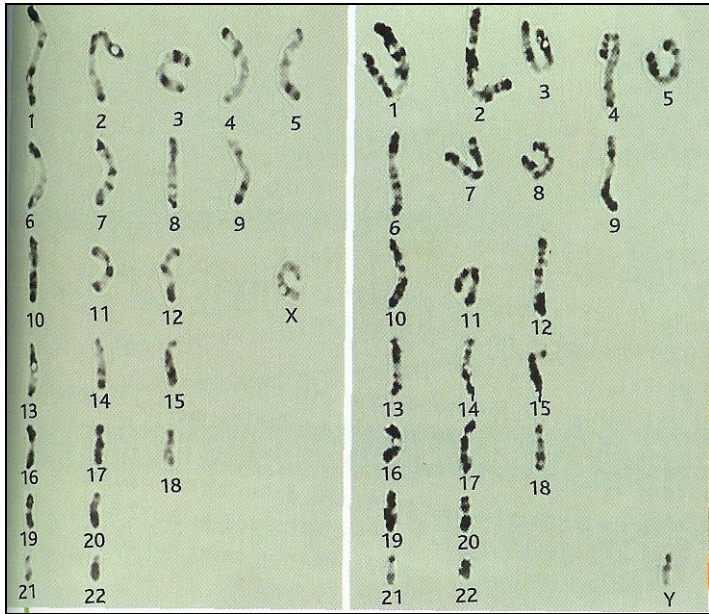 1 2 3 4 5
6 7 8 9
10 11 12 X
13 14 15
16 17 18
19 20
21 22
1 2 3 4 5
6 7 8 9
10 11 12
13 14 15
16 17 18
19 20
21 22 Y